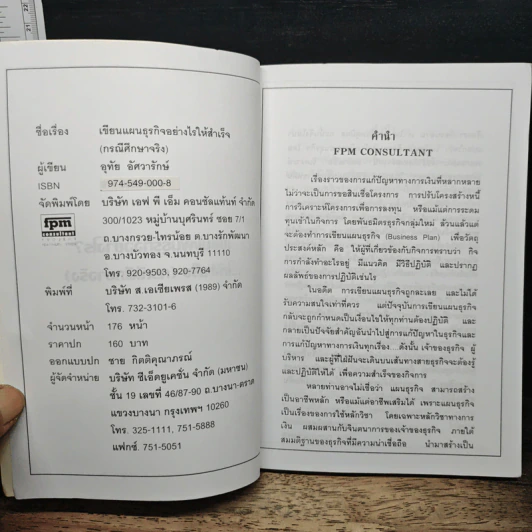 ชื่อเรื่อง เขียนแผนธุรกิจอย่างไรให้สำเร็จ
(กรณีศึกษาจริง)
ผู้เขียน อุทัย อัศวารักษ์
ISBN 974-549-000-8
จัดพิมพ์โดย บริษัท เอฟ พี เอ็ม คอนซัลแท้นท์ จำกัด
fpm consultant
300/1023 หมู่บ้านบุศรินทร์ ซอย 7/1
ถ.บางกรวย-ไทรน้อย ต.บางรักพัฒนา
อ.บางบัวทอง จ.นนทบุรี 11110
โทร. 920-9503, 920-7764
พิมพ์ที่ บริษัท ส.เอเซียเพรส (1989) จำกัด
โทร. 732-3101-6
จำนวนหน้า 176 หน้า
ราคาปก 160 บาท
ออกแบบปก ชาย กิตติคุณาภรณ์
ผู้จัดจำหน่าย บริษัท ซีเอ็ดยูเคชั่น จำกัด (มหาชน)
ชั้น 19 เลขที่ 46/87-90 ถ.บางนา-ตราด
แขวงบางนา กรุงเทพฯ 10260
โทร. 325-1111, 751-5888
แฟกซ์. 751-5051
คำนำ
FPM CONSULTANT
เรื่องราวของการแก้ปัญหาทางการเงินที่หลากหลาย
ไม่ว่าจะเป็นการขอสินเชื่อโครงการ การปรับโครงสร้างหนี้
การวิเคราะห์โครงการเพื่อการลงทุน หรือแม้แต่การระดม
ทุนเข้าในกิจการ โดยพันธมิตรธุรกิจกลุ่มใหม่ ล้วนแล้วแต่
จะต้องทำการเขียนแผนธุรกิจ (Business Plan) เพื่อวัตถุ
ประสงค์หลัก คือ ให้ผู้ที่เกี่ยวข้องกับกิจการทราบว่า กิจ
การกำลังทำอะไรอยู่ มีแนวคิด มีวิธีปฏิบัติ และปรากฏ
ผลลัพธ์ของการปฏิบัติเช่นไร
ในอดีต การเขียนแผนธุรกิจถูกละเลย และไม่ได้
รับความสนใจเท่าที่ควร แต่ปัจจุบันการเขียนแผนธุรกิจ
กลับจะถูกกำหนดเป็นเงื่อนไขให้ทุกท่านต้องปฏิบัติ และ
กลายเป็นปัจจัยสำคัญอันนำไปสู่การแก้ปัญหาในธุรกิจและ
การแก้ปัญหาทางการเงินทุกเรื่อง...ดังนั้น เจ้าของธุรกิจ ผู้
บริหาร และผู้ที่ใฝ่ฝันจะเดินบนเส้นทางสายธุรกิจจะต้องรู้
และปฏิบัติให้ได้ เพื่อความสำเร็จของกิจการ
หลายท่านอาจไม่เชื่อว่า แผนธุรกิจ สามารถสร้าง
เป็นอาชีพหลัก หรือแม้แต่อาชีพเสริมได้ เพราะแผนธุรกิจ
เป็นเรื่องของการใช้หลักวิชา โดยเฉพาะหลักวิชาทางการ
เงิน ผสมผสานกับจินตนาการของเจ้าของธุรกิจ ภายใต้
สมมติฐานของธุรกิจที่มีความน่าเชื่อถือ นำมาสร้างเป็น